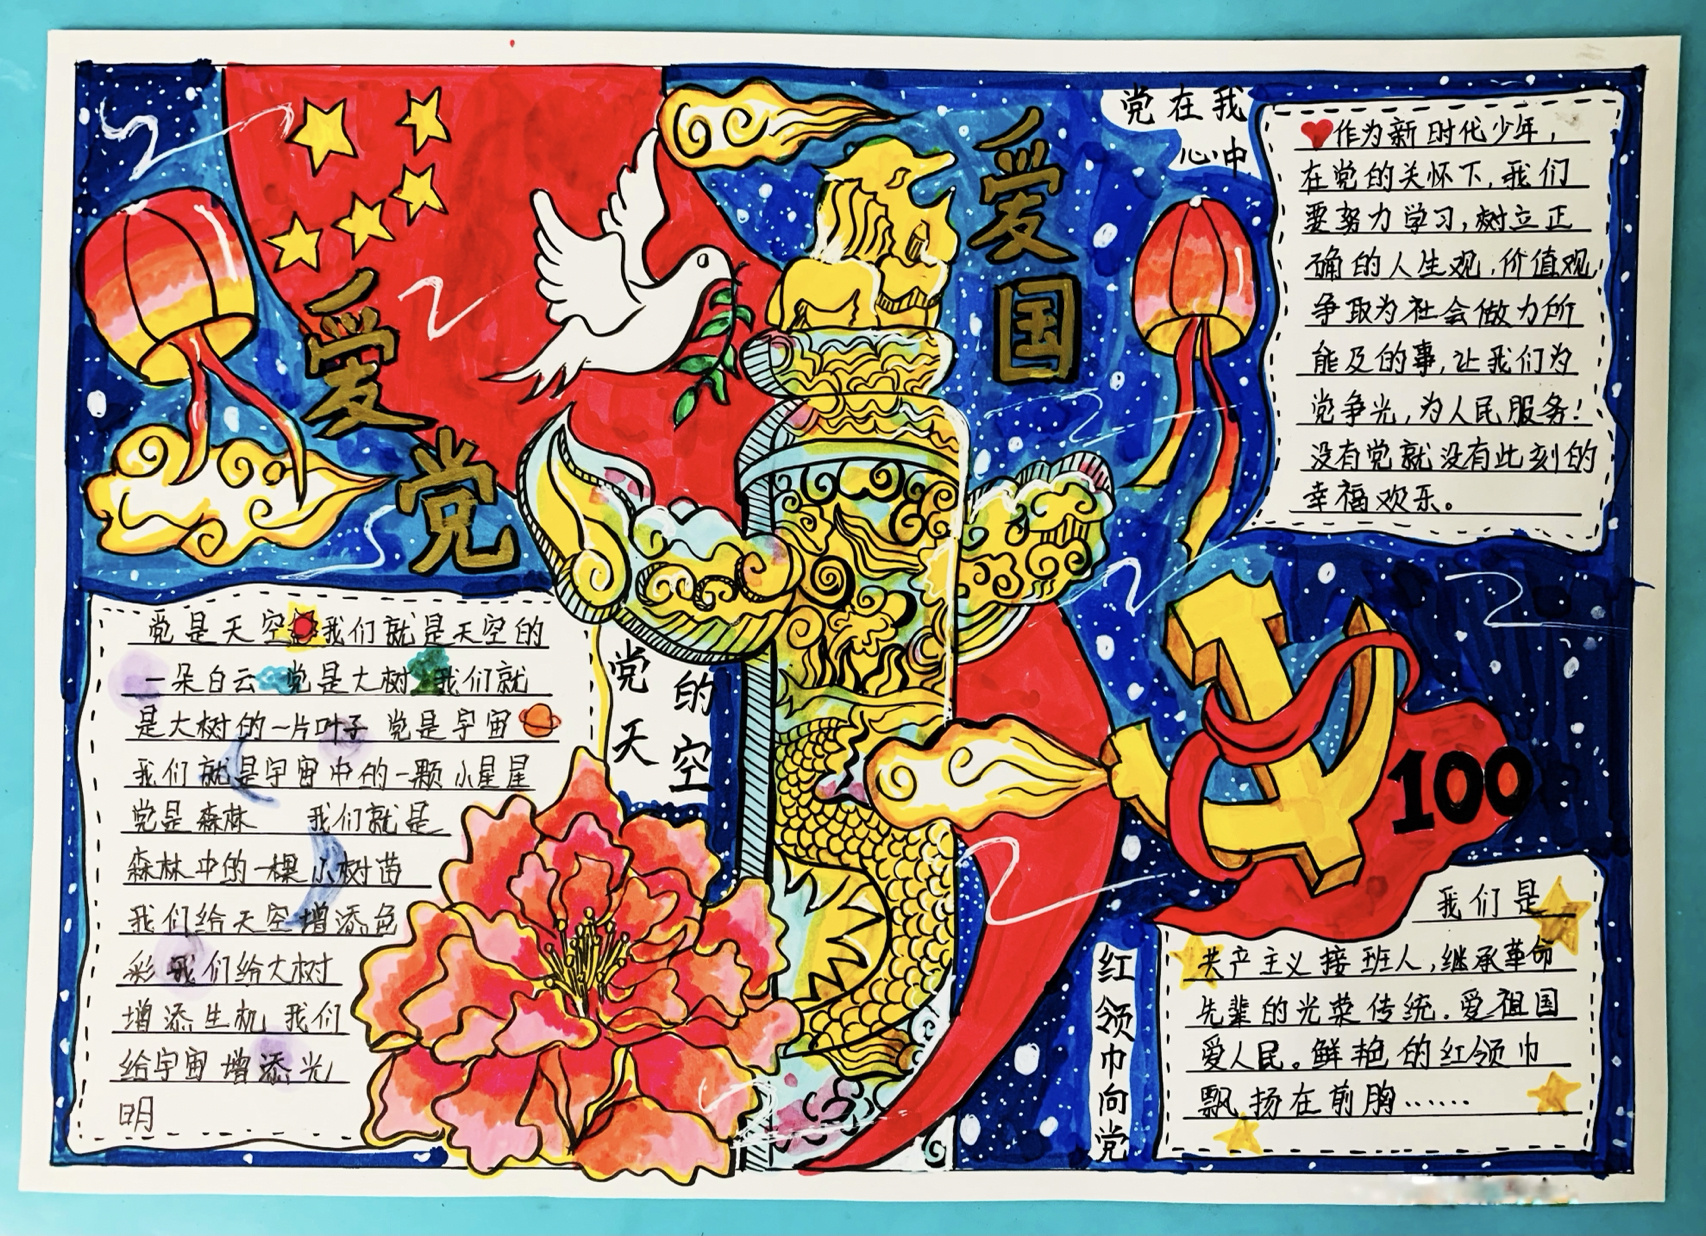 爱党
爱国
党在我
心中
作为新时代少年，
在党的关怀下，我们
要努力学习，树立正
确的人生观，价值观，
争取为社会做力所
能及的事，让我们为
党争光，为人民服务！
没有党就没有此刻的
幸福欢乐。
党的
天空
党是天空 我们就是天空的
一朵白云 党是大树 我们就
是大树的一片叶子 党是宇宙
我们就是宇宙中的一颗小星星
党是森林 我们就是
森林中的一棵小树苗
我们给天空增添色
彩 我们给大树
增添生机 我们
给宇宙增添光
明
100
红领巾向党
我们是
共产主义接班人，继承革命
先辈的光荣传统。爱祖国
爱人民。鲜艳的红领巾
飘扬在前胸……